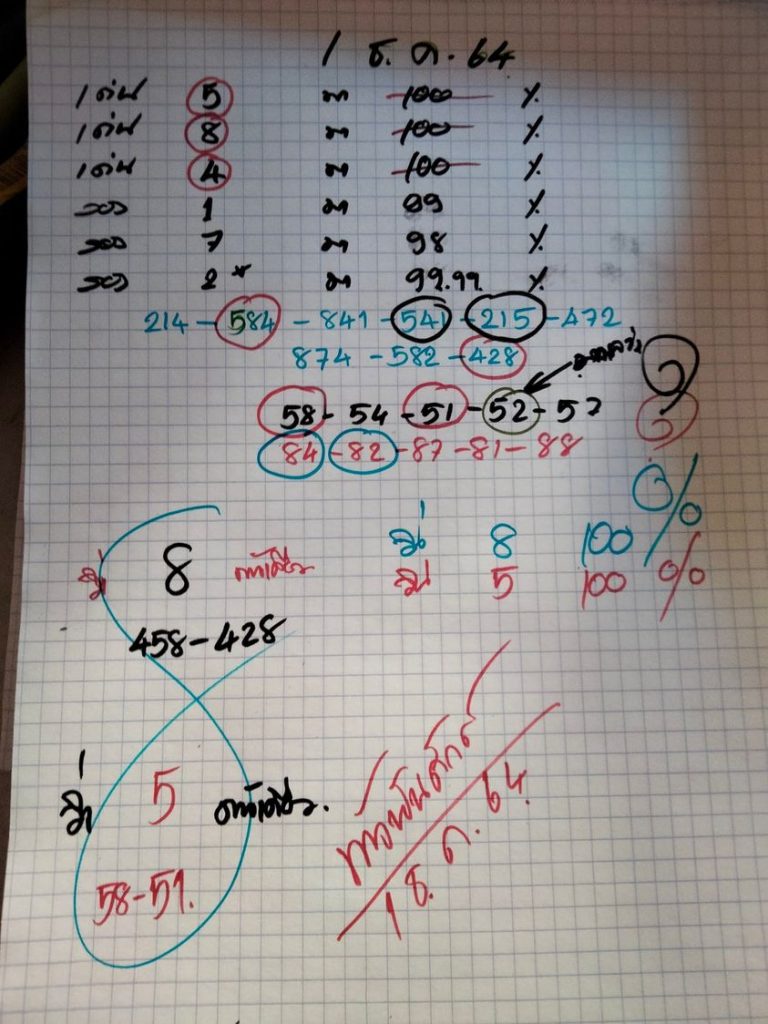 1 ธ.ค.64
เด่น 5 มา 100 %
เด่น 8 มา 100 %
เด่น 4 มา 100 %
รอง 1 มา 99 %
รอง 7 มา 98 %
รอง 2* มา 99.99 %
214-584-841-541-215-472
874-582-428
58-54-51-52-57
84-82-87-81-88
วิ่ง 8 ตัวเดียว
วิ่ง 8 100 %
วิ่ง 5 100 %
458-428
วิ่ง 5 ตัวเดียว.
58-51.
1 ธ.ค.64.